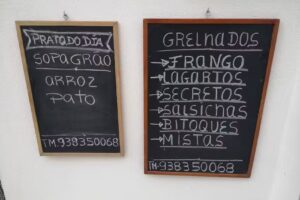 PRATO DO DIA
SOPA GRÃO
ARROZ
PATO
TM:938350068
GRELHADOS
→FRANGO
→LAGARTOS
→SECRETOS
→SALSICHAS
→BITOQUES
→MISTAS
TM:938350068